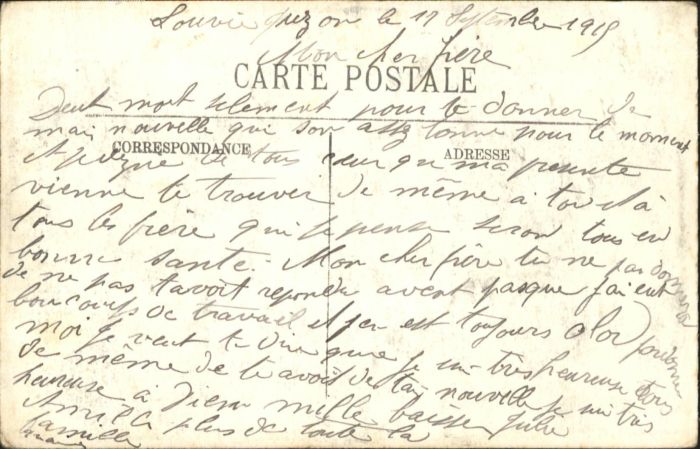 Louvie Juzon le 17 Septembre 1915
Mon cher frère
CARTE POSTALE
Deut mort selement pour te donner de
mai nouvelle qui son assez bonne pour le moment
CORRESPONDANCE
ADRESSE
de tous ceux que ma presente
vienne te trouver de même a toi et à
tous les frère qui je pense seron tous en
bonne santé. Mon cher frère tu ne pardonnera
de ne pas t'avoit repondu avent pasque j'ai eut
boucoup de travail et j'en est toujours alor pardonne
moi je veut te dire que je sui très heureuse tous
de même de te avoit de tai nouvelle je sui très
heureuse à Dieu mille baisse
Ami plus de toute la
famille